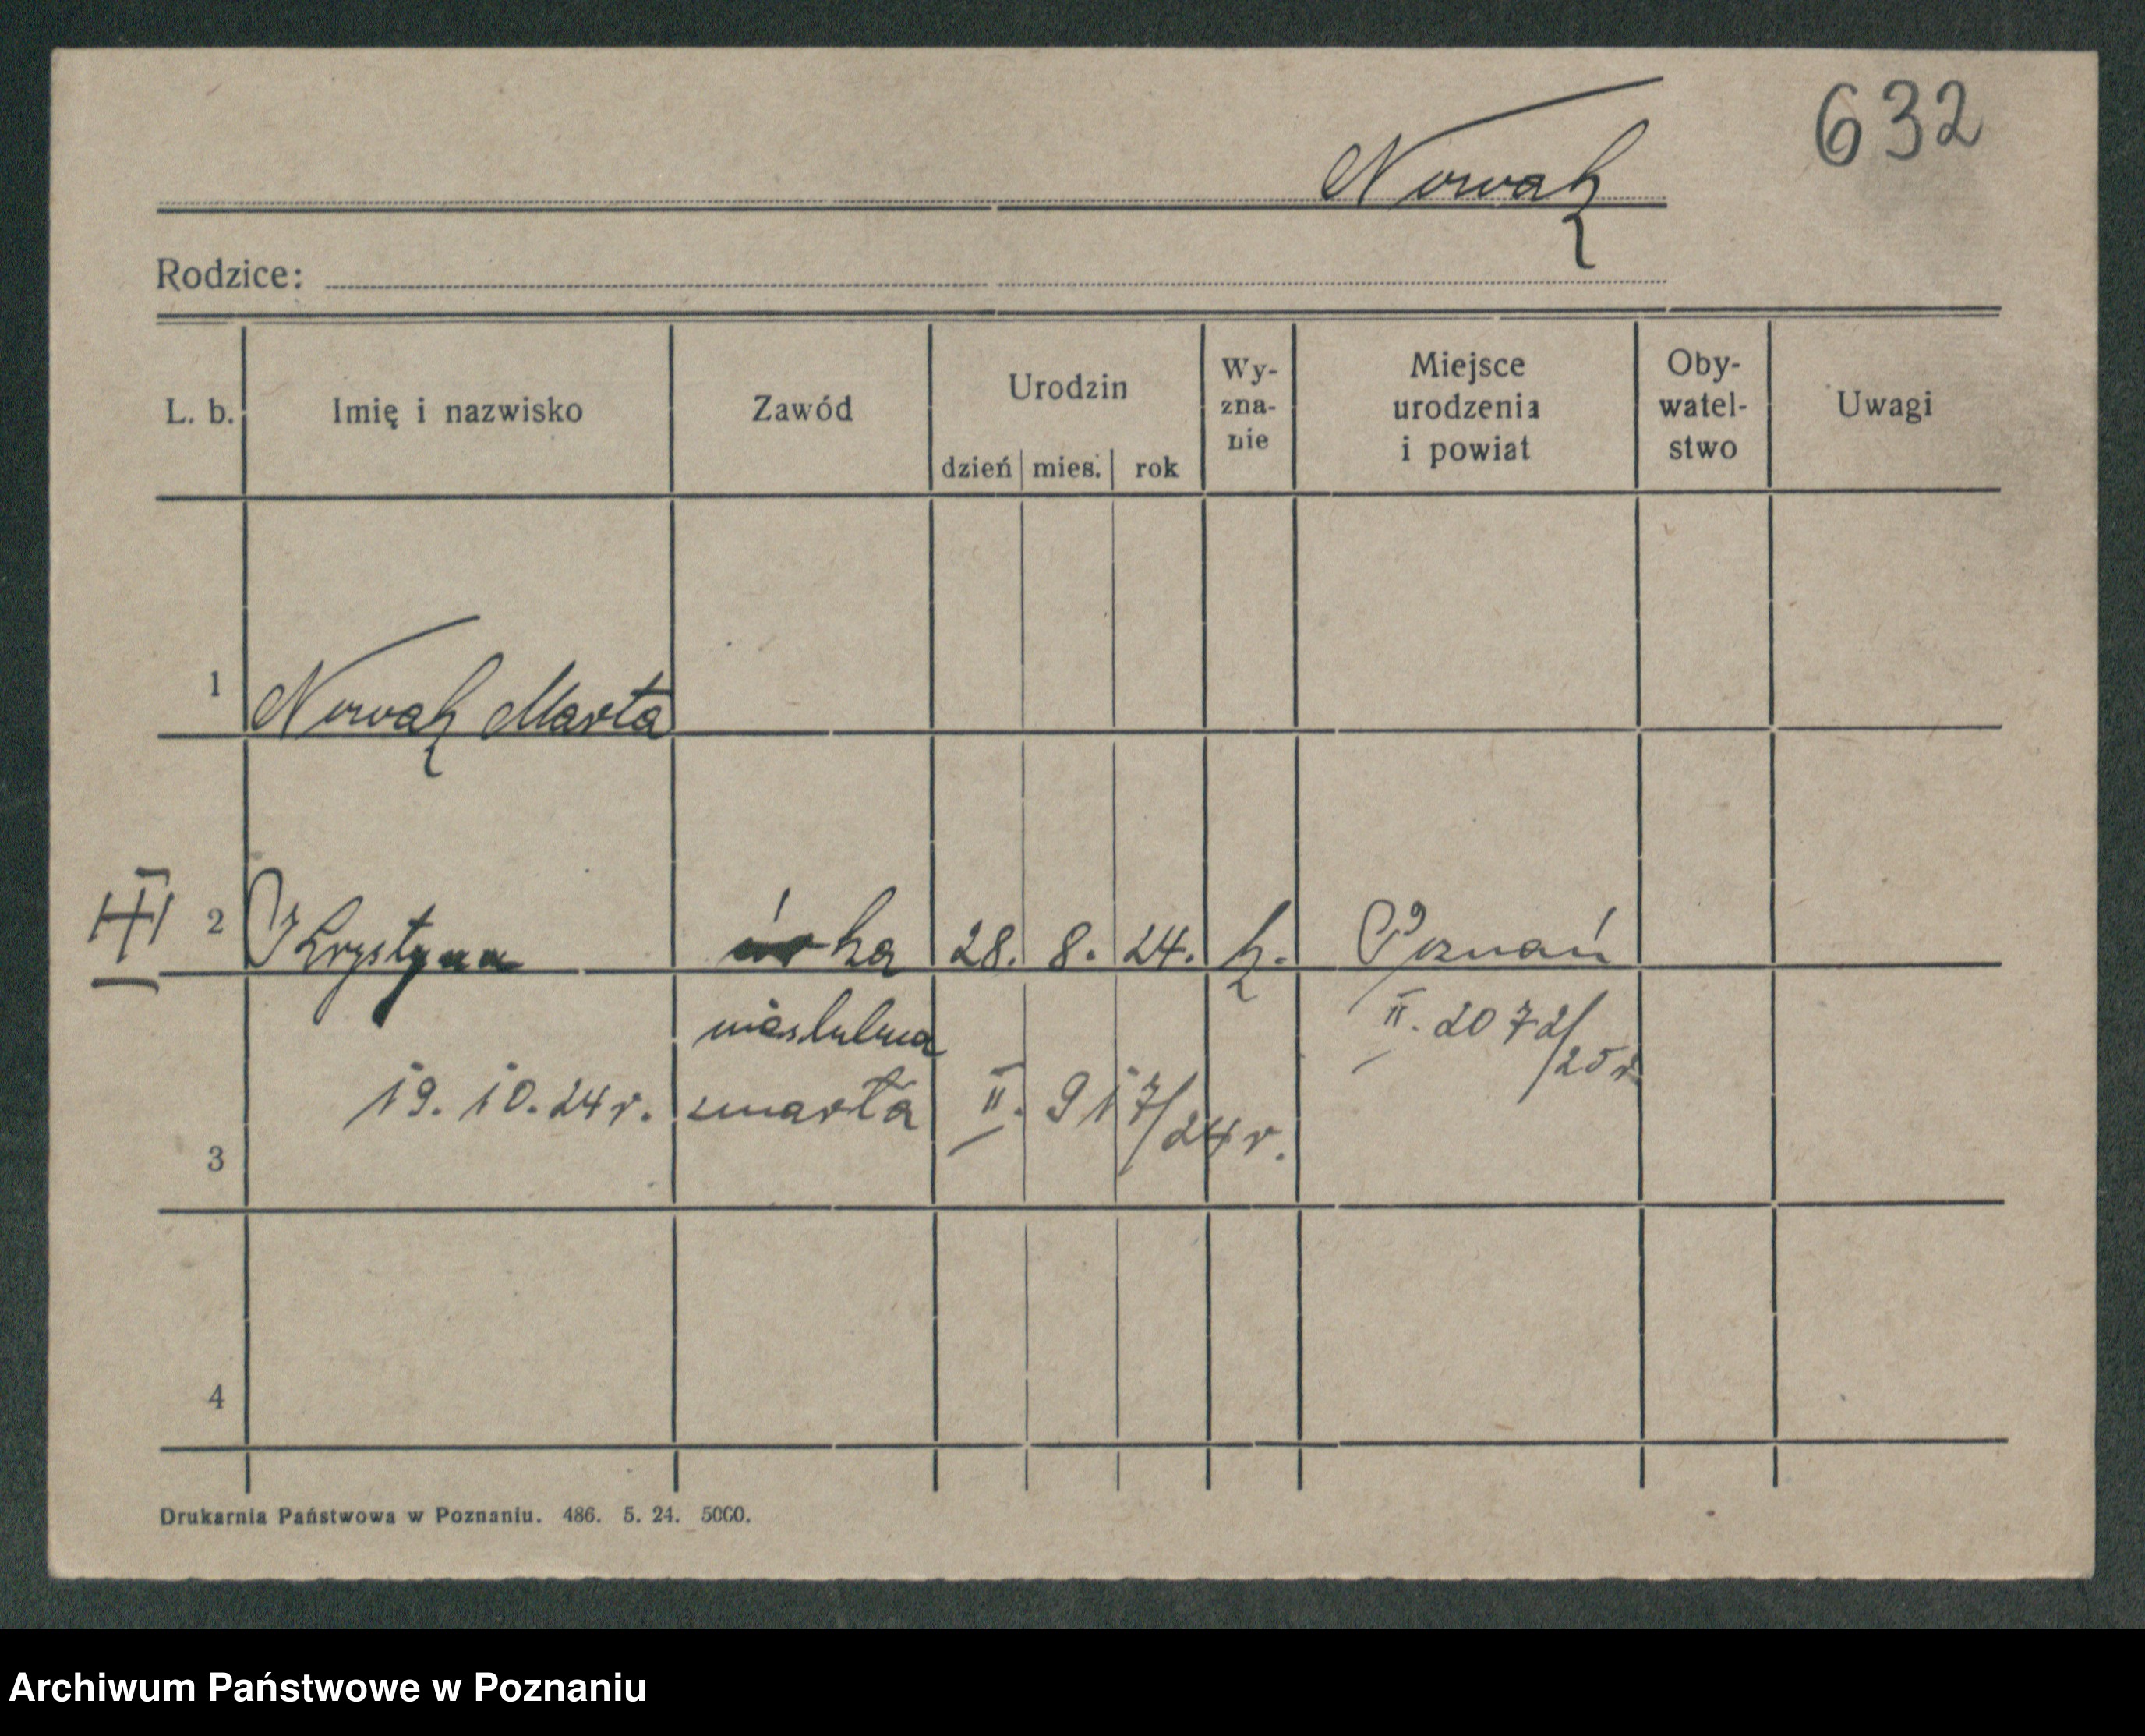 632
Nowak
Rodzice:
L. b. Imię i nazwisko Zawód Urodzin dzień mies. rok Wy-zna-nie Miejsce urodzenia i powiat Oby-watel-stwo Uwagi
1 Nowak Marta
2 Krystyna córka 28. 8. 24. k. Poznań
nieślubna II. 2072/25 r.
3 19. 10. 24 r. zmarła II. 917/24 r.
4
Drukarnia Państwowa w Poznaniu. 486. 5. 24. 5000.
Archiwum Państwowe w Poznaniu